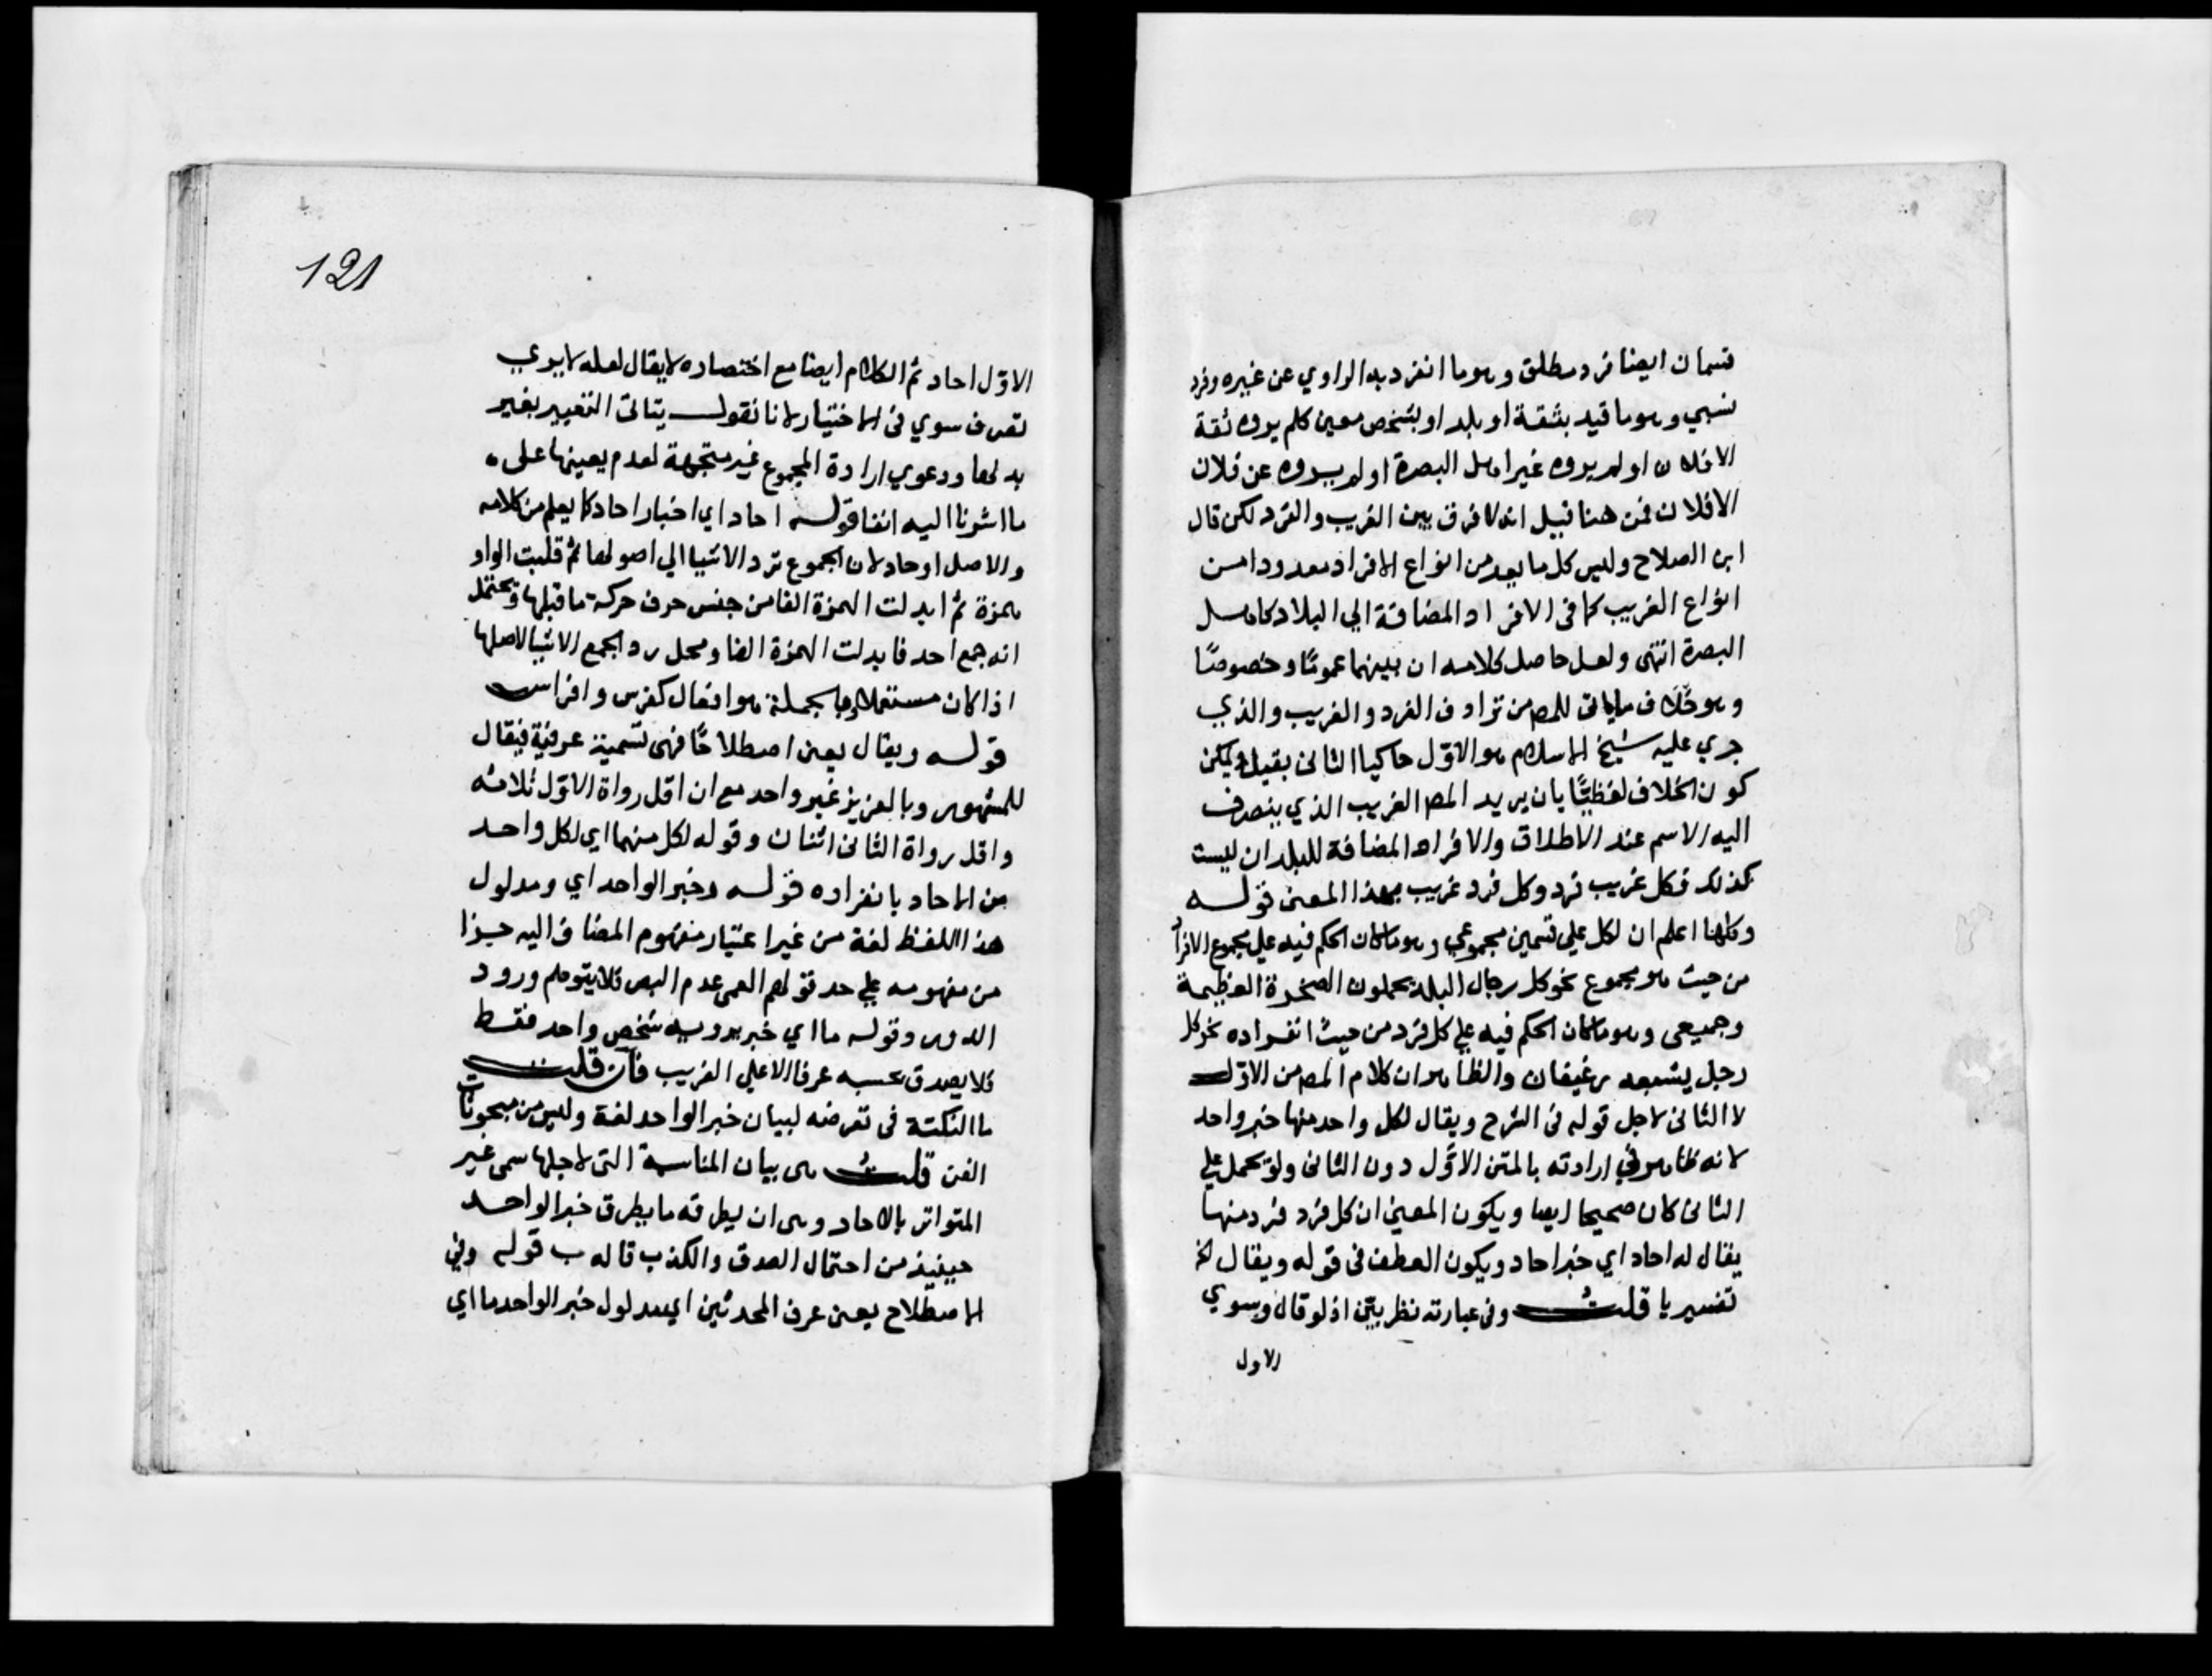 قسمان ايضا فرد مطلق وهو ما انفرد به الراوي عن غيره وفرد
نسبي وهو ما قيد بثقة او بلد او بشخص معين كلم يروه ثقة
الا فلان او لم يروه غير اهل البصرة او لم يروه عن فلان
الا فلان فمن هنا قيل انه لا فرق بين الغريب والفرد لكن قال
ابن الصلاح وليس كل ما يعد من انواع الافراد معدودا من
انواع الغريب كما في الافراد المضافة الي البلاد كاهل
البصرة انتهى ولعل حاصل كلامه ان بينهما عمومًا وخصوصًا
وهو خلاف ماياتي للمص من ترادف الفرد والغريب والذي
جري عليه شيخ الاسلام هو الاوّل حاكيا الثاني بقيل ويمكن
كون الخلاف لفظيًّا بان يريد المص الغريب الذي ينصرف
اليه الاسم عند الاطلاق والافراد المضافة للبلدان ليست
كذلك فكل غريب فرد وكل فرد غريب بهذا المعنى قوله
وكلها اعلم ان لكل علي قسمين مجموعي وهو ما كان الحكم فيه علي مجموع الافراد
من حيث هو مجموع نحو كل رجال البلد يحملون الصخرة العظيمة
وجميعي وهو ما كان الحكم فيه علي كل فرد من حيث انفراده نحو كل
رجل يشبعه رغيفان والظاهر ان كلام المص من الاوّل
لا الثاني لاجل قوله في الشرح ويقال لكل واحد منها خبر واحد
لانه ظاهر في ارادته بالمتن الاوّل دون الثاني ولو حمل علي
الثاني كان صحيحا ايضا ويكون المعني ان كل فرد فرد منها
يقال له احاد اي خبر احاد ويكون العطف في قوله ويقال الخ
تفسيريا قلت وفي عبارته نظر بيّن اذ لو قال وسوي
الاول
121
الاوّل احاد تم الكلام ايضا مع اختصاره لا يقال لعله لا يري
تصرف سوي في الاختيار لانا نقول يتاتى التغيير بغير
بدلها ودعوي ارادة المجموع غير متجهة لعدم يعينها على
ما اشرنا اليه انفا قوله احاد اي اخبار احاد كما يعلم من كلامه
والاصل اوحاد لان الجموع ترد الاشيا الي اصولها ثم قلبت الواو
همزة ثم ابدلت الهمزة الفا من جنس حرف حركة ما قبلها ويحتمل
انه جمع احد فابدلت الهمزة الفا ومحل رد الجمع الاشيا لاصلها
اذا كان مستعملا وبالجملة هو افعال كفرس وافراس
قوله ويقال يعني اصطلاحًا فهي تسمية عرفية فيقال
للمشهور وبالعزيز غير واحد مع ان اقل رواة الاوّل ثلاثة
واقل رواة الثاني اثنان وقوله لكل منهما اي لكل واحد
من الاحاد بانفراده قوله وخبر الواحد اي ومدلول
هذا اللفظ لغة من غير اعتبار مفهوم المضاف اليه جزا
من مفهومه علي حد قولهم العمى عدم البصر فلا يتوهم ورود
الدور وقوله ما اي خبر يرويه شخص واحد فقط
فلا يصدق بحسبه عرفا الا علي الغريب فان قلت
ما النكتة في تعرضه لبيان خبر الواحد لغة وليس من مبحوثات
الفن قلت هي بيان المناسبة التي لاجلها سمى غير
المتواتر بالاحاد وهي ان يطرقه ما يطرق خبر الواحد
حينيذ من احتمال الصدق والكذب قاله ب قوله وفي
الاصطلاح يعني عرف المحدثين اي مدلول خبر الواحد ما اي